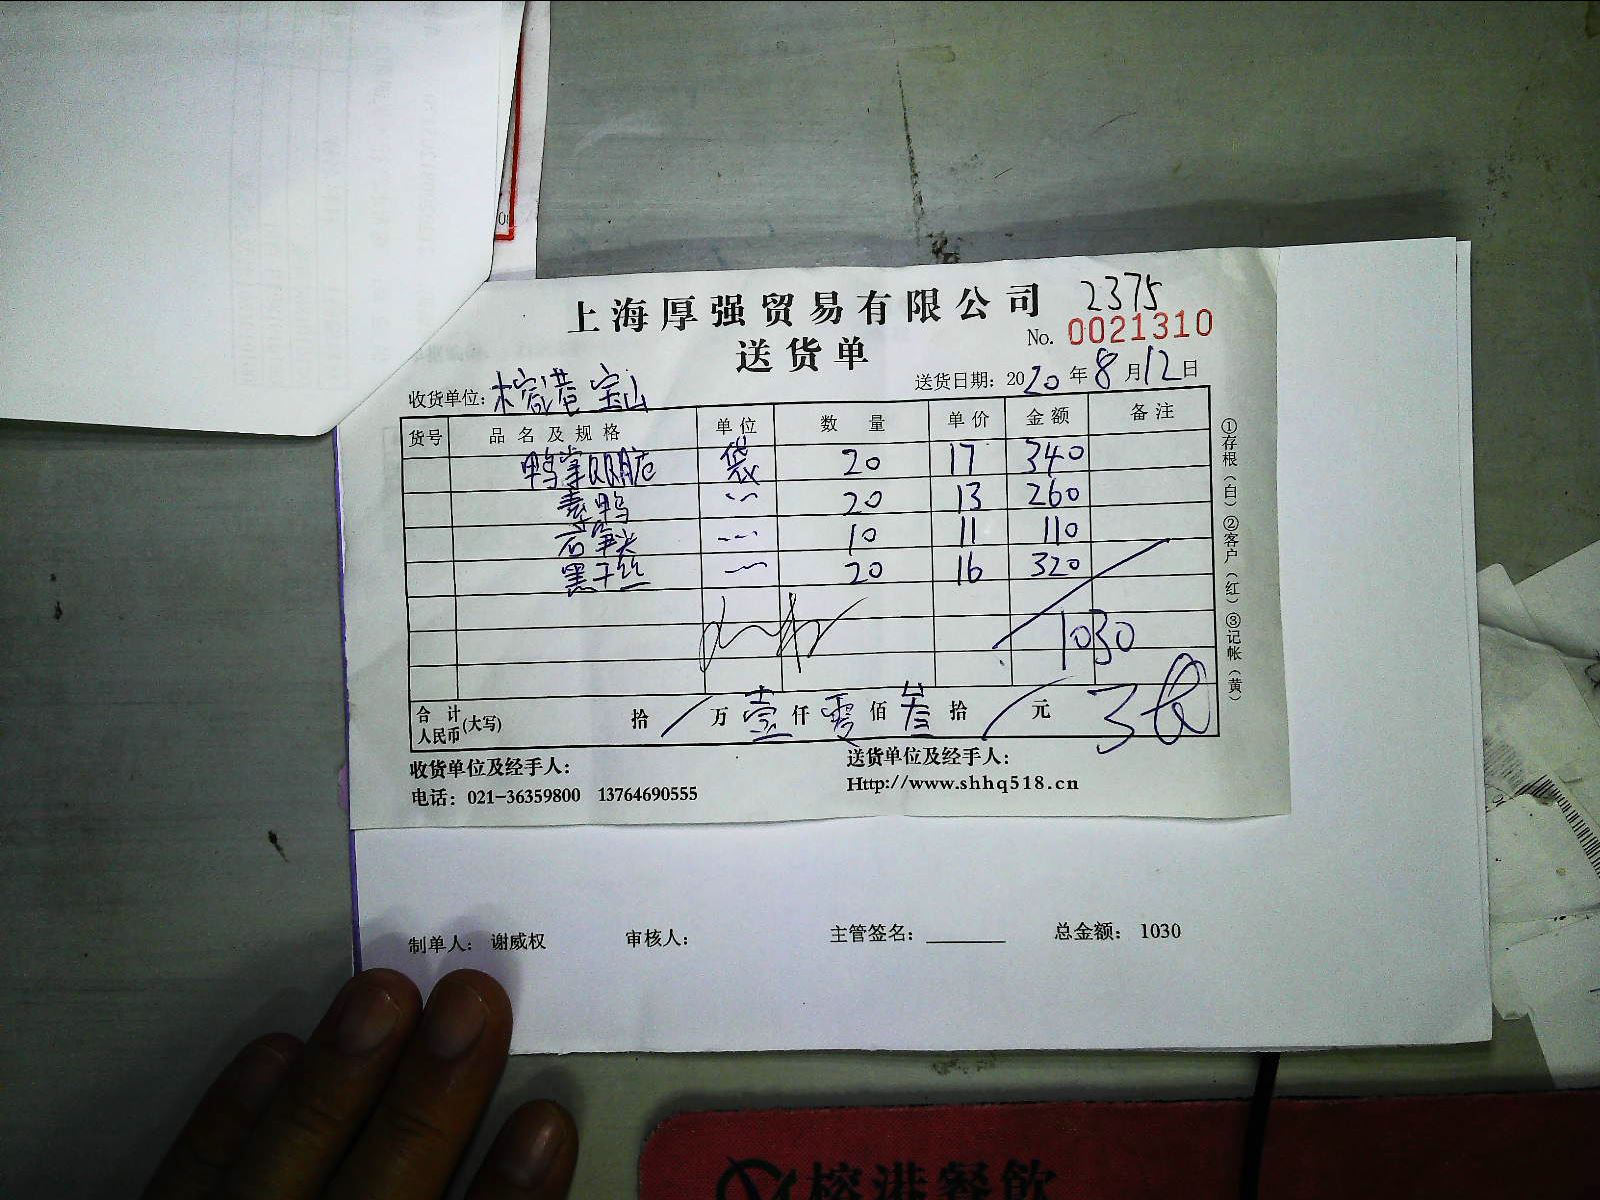 上海厚强贸易有限公司 2375
送货单 No. 0021310
收货单位: 榕港宝山 送货日期: 2020年8月12日
货号 品名及规格 单位 数量 单价 金额 备注
鸭掌双脆 袋 20 17 340
素鸭 〃 20 13 260
石笋尖 〃 10 11 110
黑干丝 〃 20 16 320
1030
合计人民币(大写) 拾 / 万 壹 仟 零 佰 叁 拾 / 元
①存根(白)②客户(红)③记帐(黄)
收货单位及经手人: 送货单位及经手人:
电话: 021-36359800 13764690555 Http://www.shhq518.cn
制单人: 谢威权 审核人: 主管签名: ________ 总金额: 1030
榕港餐飲